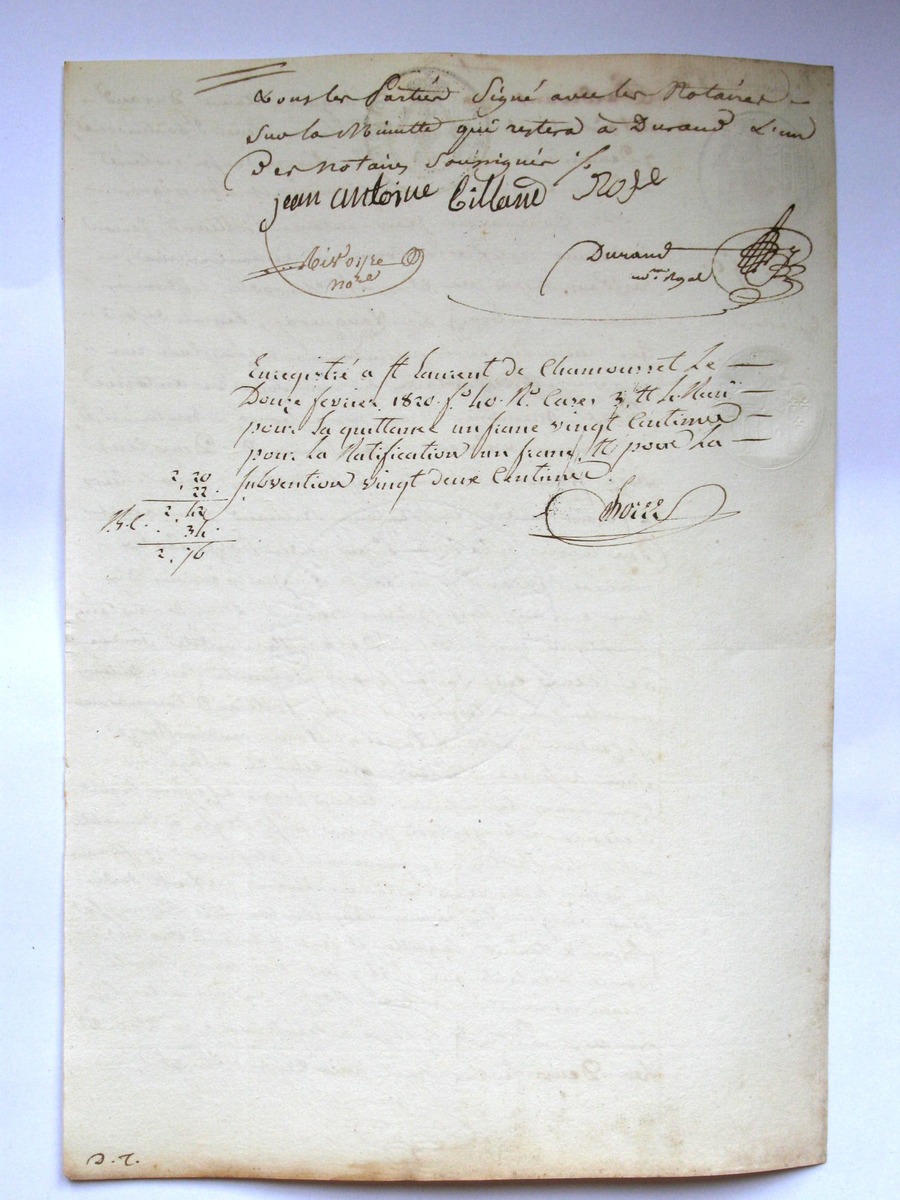 tous les Parties Signé avec les Notaires
Sur la Minutte qui restera à Durand L'un
Des Notaires Soussignés
jean antoine Billand Roze
Rivoyre Durand
nore nre Royal
Enregistré a st Laurent de Chamousset Le
Douze fevrier 1820 fo 40 Ro Cases 3 Reçu
pour La quittance un franc vingt Centimes
pour La Notification un franc, Et pour La
Subvention vingt deux Centimes.
2,20
22
2,42
34
2,76
D. T.